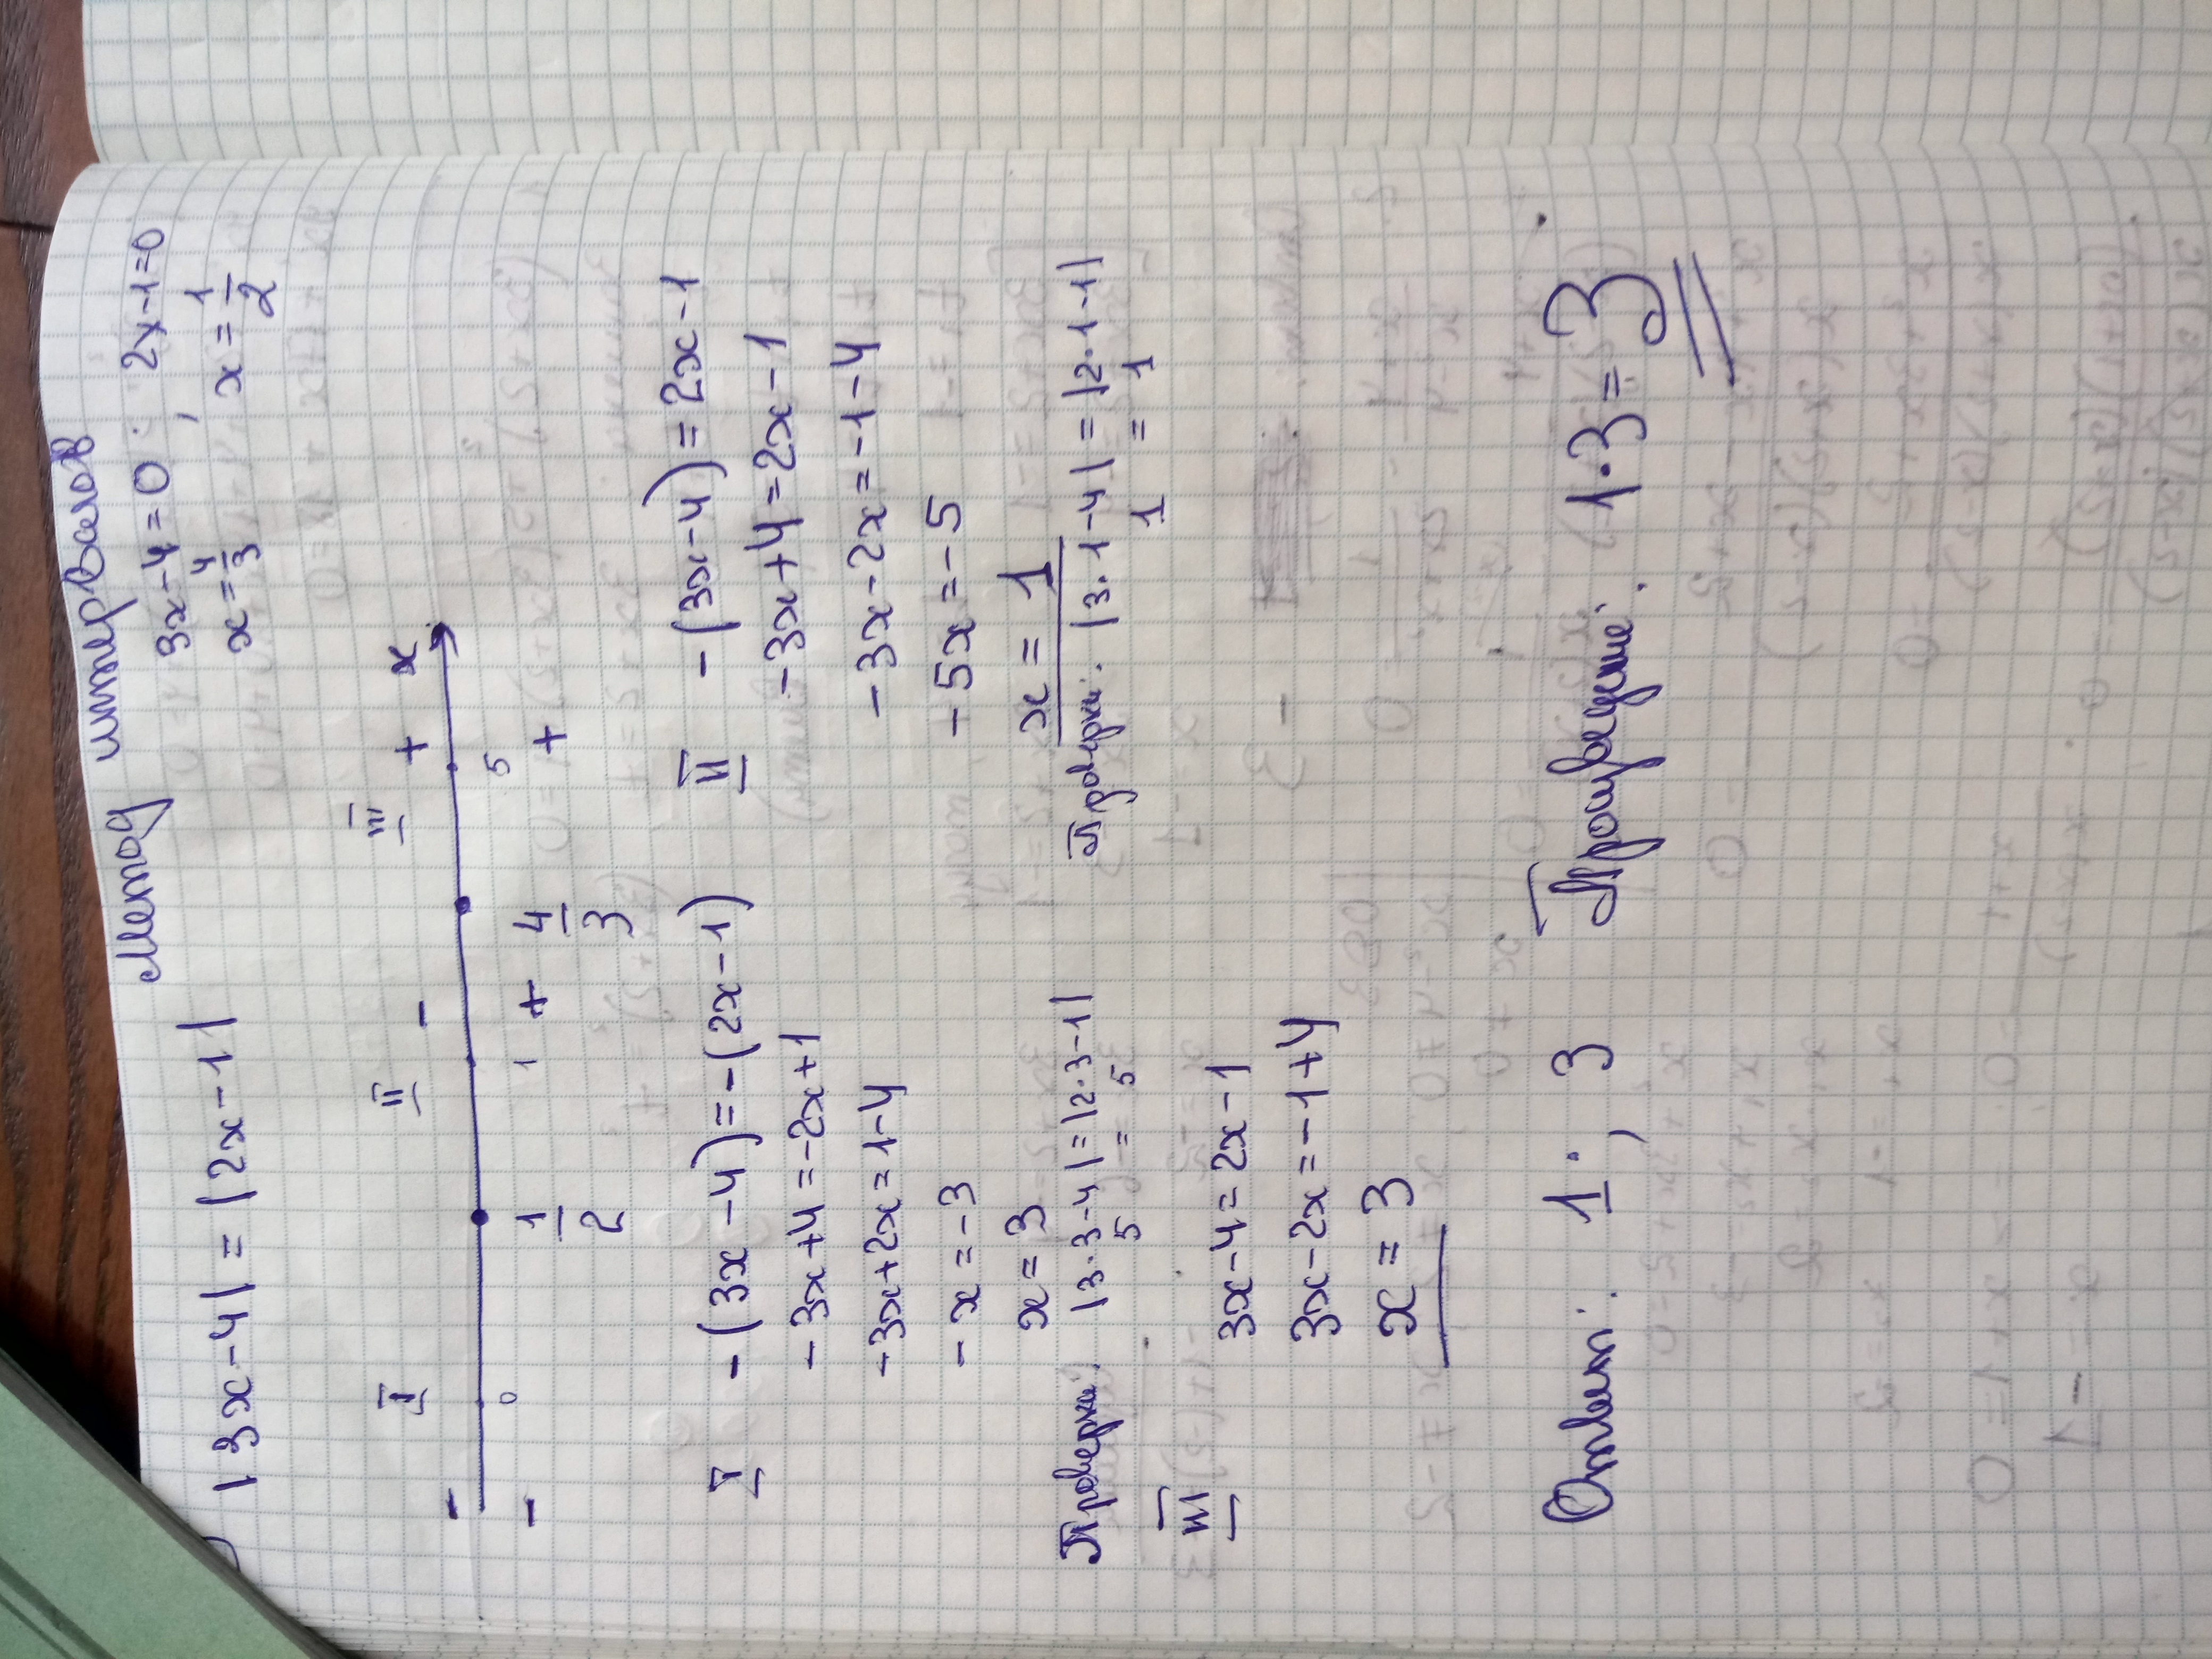 Метод интервалов
|3x-4| = |2x-1|
3x-4=0; 2x-1=0
x=4/3, x=1/2
I II III
- - + x
0 1/2 1 4/3 5
- + +
I -(3x-4)=-(2x-1)
-3x+4=-2x+1
-3x+2x=1-4
-x=-3
x=3
Проверка: |3·3-4|=|2·3-1|
5 = 5
II -(3x-4)=2x-1
-3x+4=2x-1
-3x-2x=-1-4
-5x=-5
x=1
Проверка: |3·1-4|=|2·1-1|
1 = 1
III 3x-4=2x-1
3x-2x=-1+4
x=3
Ответ: 1; 3 Произведение: 1·3=3